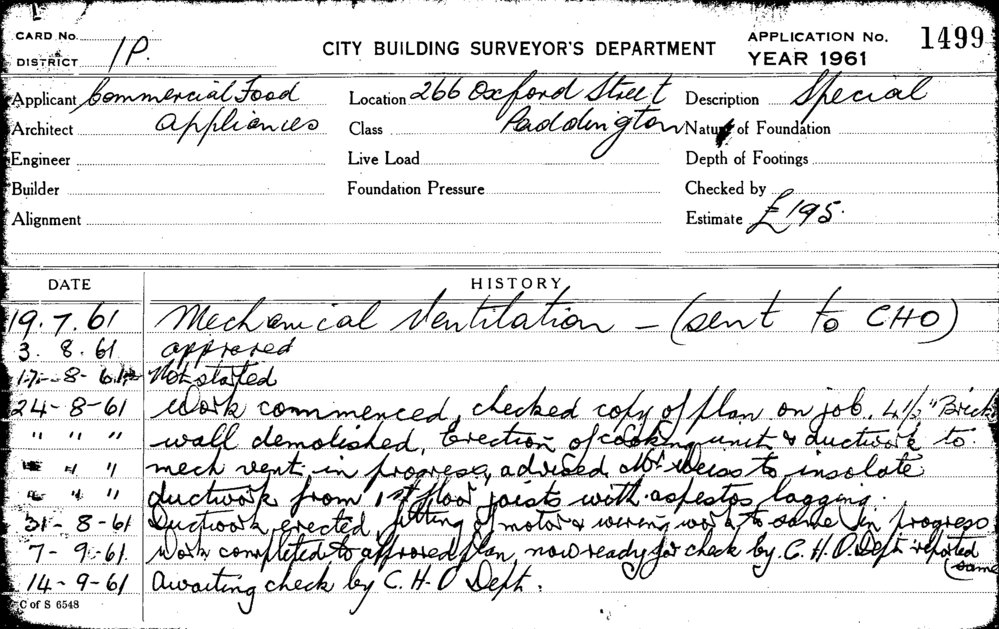 CARD No.
DISTRICT 1P.
CITY BUILDING SURVEYOR'S DEPARTMENT
APPLICATION No. 1499
YEAR 1961
Applicant Commercial Food Location 266 Oxford Street Description Special
Architect Appliances Class Paddington Nature of Foundation
Engineer Live Load Depth of Footings
Builder Foundation Pressure Checked by
Alignment Estimate £195.
DATE HISTORY
19.7.61 Mechanical Ventilation - (sent to CHO)
3.8.61 approved
17-8-61 Not started
24-8-61 Work commenced, checked copy of plan on job. 4½" Brick
" " " wall demolished, Erection of cooking unit & ductwork to
" " " mech vent. in progress, advised Mr Weiss to insolate
" " " ductwork from 1st floor joists with aspestos lagging.
31-8-61 Ductwork erected, fitting of motor & wireing work to same in progress
7-9-61. Work completed to approved plan, now ready for check by C.H.O. Dept reported
(same
14-9-61 Awaiting check by C.H.O Dept.
C of S 6548